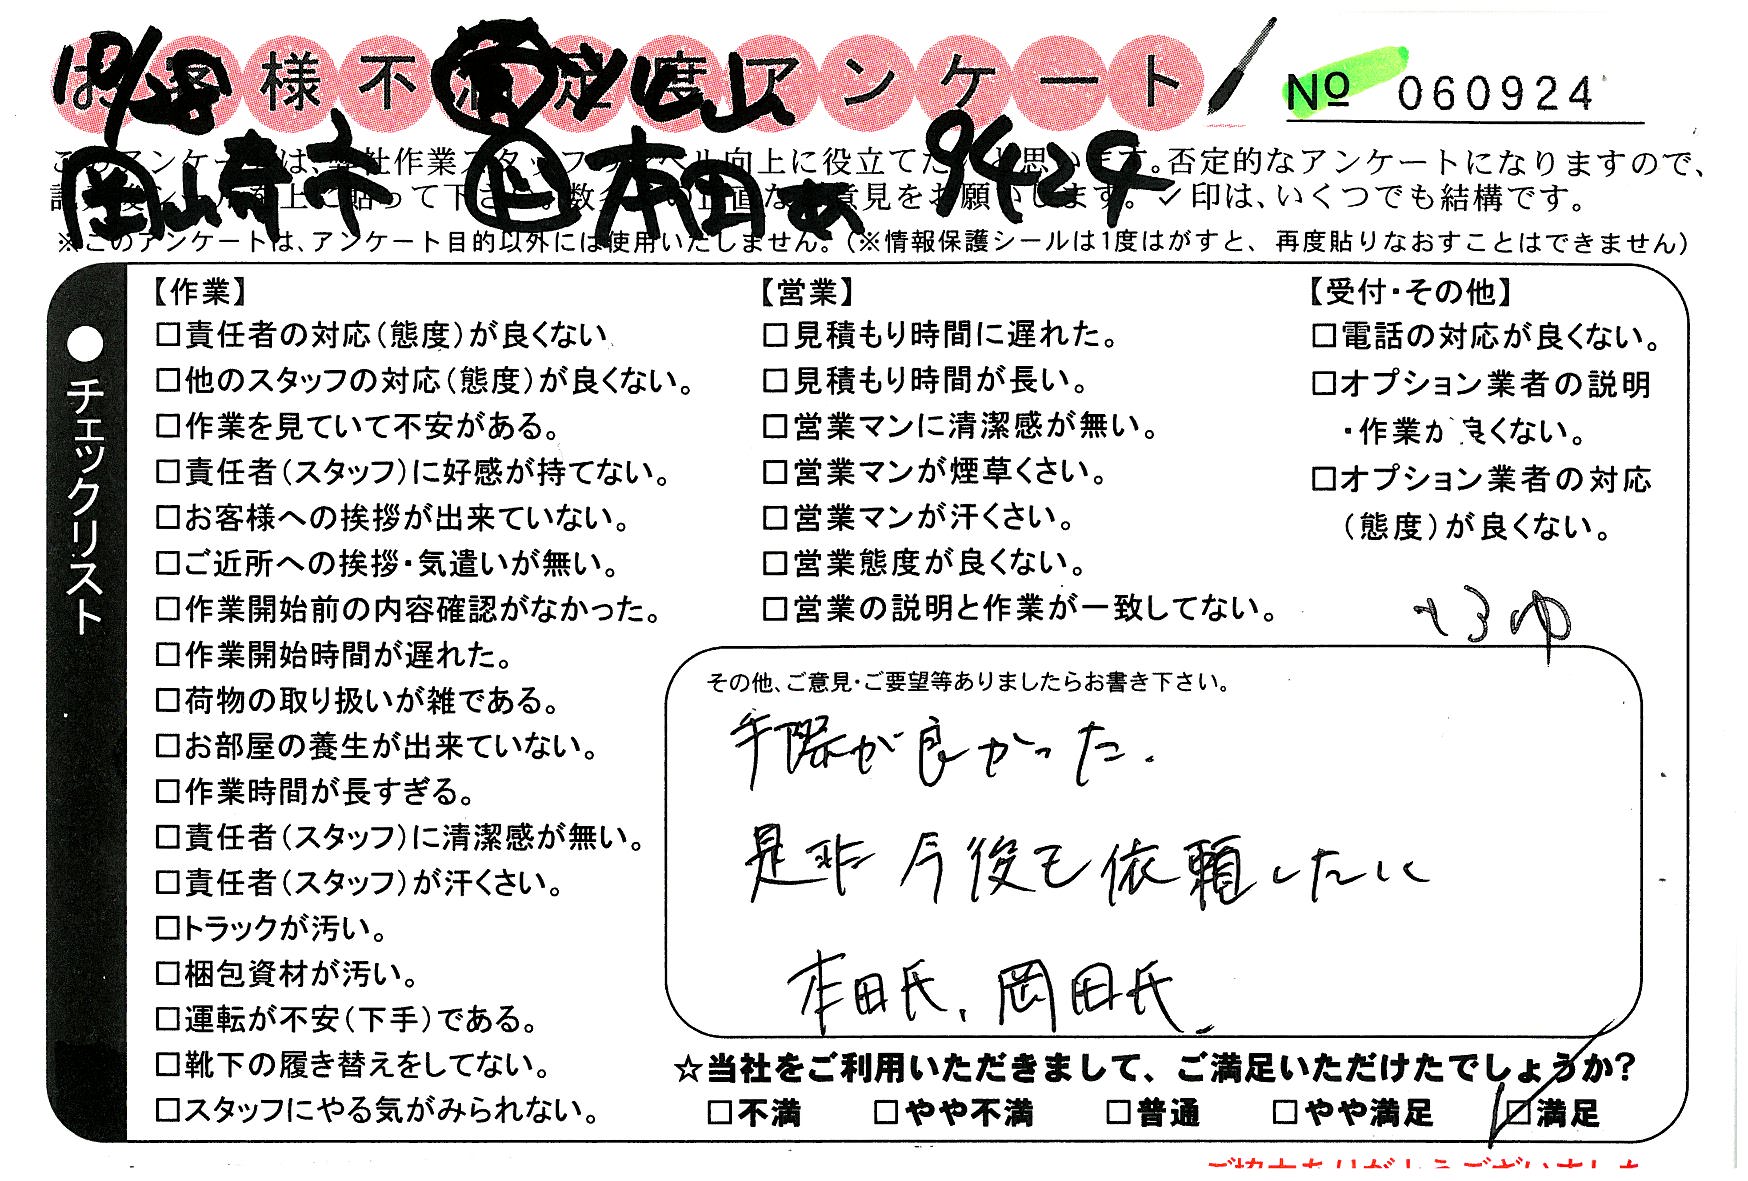 お客様不満足度アンケート
No 060924
このアンケートは、弊社作業スタッフのレベル向上に役立てたいと思います。否定的なアンケートになりますので、
上に貼って下さい 意見をお願いします。✓印は、いくつでも結構です。
本田 9424
※このアンケートは、アンケート目的以外には使用いたしません。(※情報保護シールは1度はがすと、再度貼りなおすことはできません)
●チェックリスト
【作業】
□責任者の対応(態度)が良くない
□他のスタッフの対応(態度)が良くない。
□作業を見ていて不安がある。
□責任者(スタッフ)に好感が持てない。
□お客様への挨拶が出来ていない。
□ご近所への挨拶・気遣いが無い。
□作業開始前の内容確認がなかった。
□作業開始時間が遅れた。
□荷物の取り扱いが雑である。
□お部屋の養生が出来ていない。
□作業時間が長すぎる。
□責任者(スタッフ)に清潔感が無い。
□責任者(スタッフ)が汗くさい。
□トラックが汚い。
□梱包資材が汚い。
□運転が不安(下手)である。
□靴下の履き替えをしてない。
□スタッフにやる気がみられない。
【営業】
□見積もり時間に遅れた。
□見積もり時間が長い。
□営業マンに清潔感が無い。
□営業マンが煙草くさい。
□営業マンが汗くさい。
□営業態度が良くない。
□営業の説明と作業が一致してない。
【受付・その他】
□電話の対応が良くない。
□オプション業者の説明
・作業が良くない。
□オプション業者の対応
(態度)が良くない。
その他、ご意見・ご要望等ありましたらお書き下さい。
手際が良かった.
是非今後も依頼したい
本田氏、岡田氏.
☆当社をご利用いただきまして、ご満足いただけたでしょうか?
□不満 □やや不満 □普通 □やや満足 ☑満足
ご協力ありがとうございました